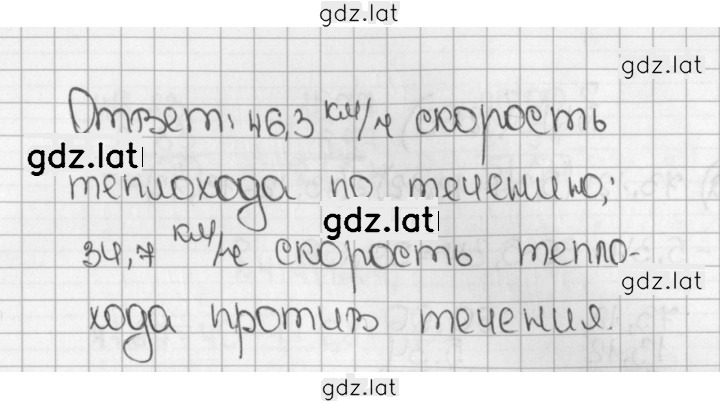 gdz.lat
gdz.lat
Ответ: 46,3 км/ч скорость
gdz.lat
теплохода по течению;
gdz.lat
34,7 км/ч скорость тепло-
gdz.lat
хода против течения.
gdz.lat